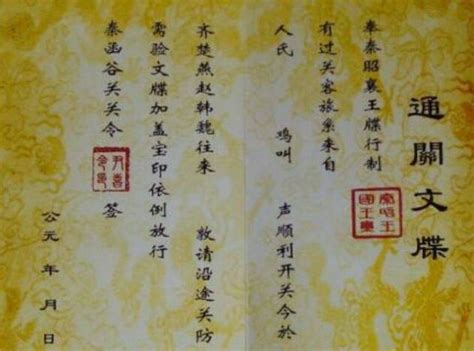 通關文牒
奉秦昭襄王牒行制
有过关客旅系来自
人民 鸡叫 声顺利开关今於
齐楚燕赵韩魏往来 敬请沿途关防
需验文牒加盖宝印依例放行
秦函谷关关令 签
公元 年 月 日